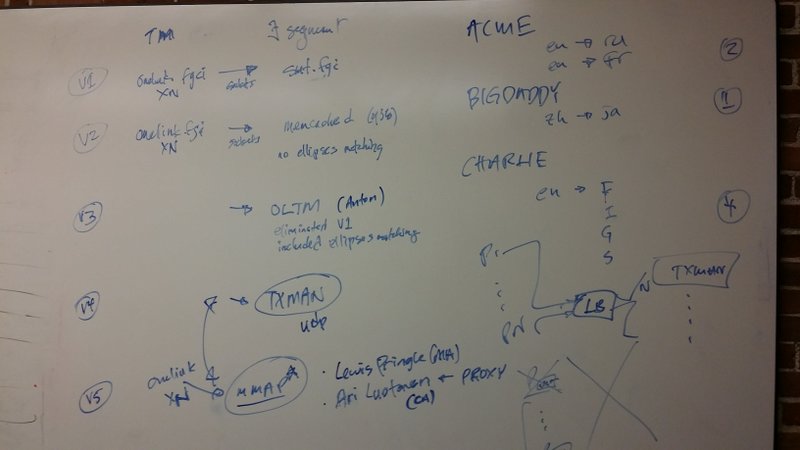 TM
segment
ACME
en → ru
en → fr
2
V1
XN
sockets
BIGDADDY
zh → ja
1
V2
onelink.fgi → memcached
XN
sockets
no ellipses matching
CHARLIE
en → F
I
G
S
4
V3
→ OLTM (Anton)
eliminated V1
included ellipses matching
P1
PN
LB
N
TXMAN
V4
→ TXMAN
udp
V5
onelink
XN
MMAP
• Lewis Pringle (MA)
• Ari Luotonen ← PROXY
(CA)